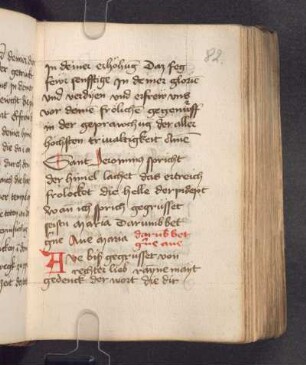 82
in deiner erhohug Daz feg
fewr senfftige in deiner glorie
vnd verdyen vnd erfrew vns
vor deine fröliche gegenüft
in der geprauchug der aller
höchsten triualtigkeit Amē
Sant Jeronimus spricht
der himel lachet das ertreich
frolocket die helle
wo an ich sprich gegrüsset
seistu maria Darumb bet
Aue maria darub bet
aue
AVe biß gegrüsset von
rechter lieb
gedenck der wort die dir